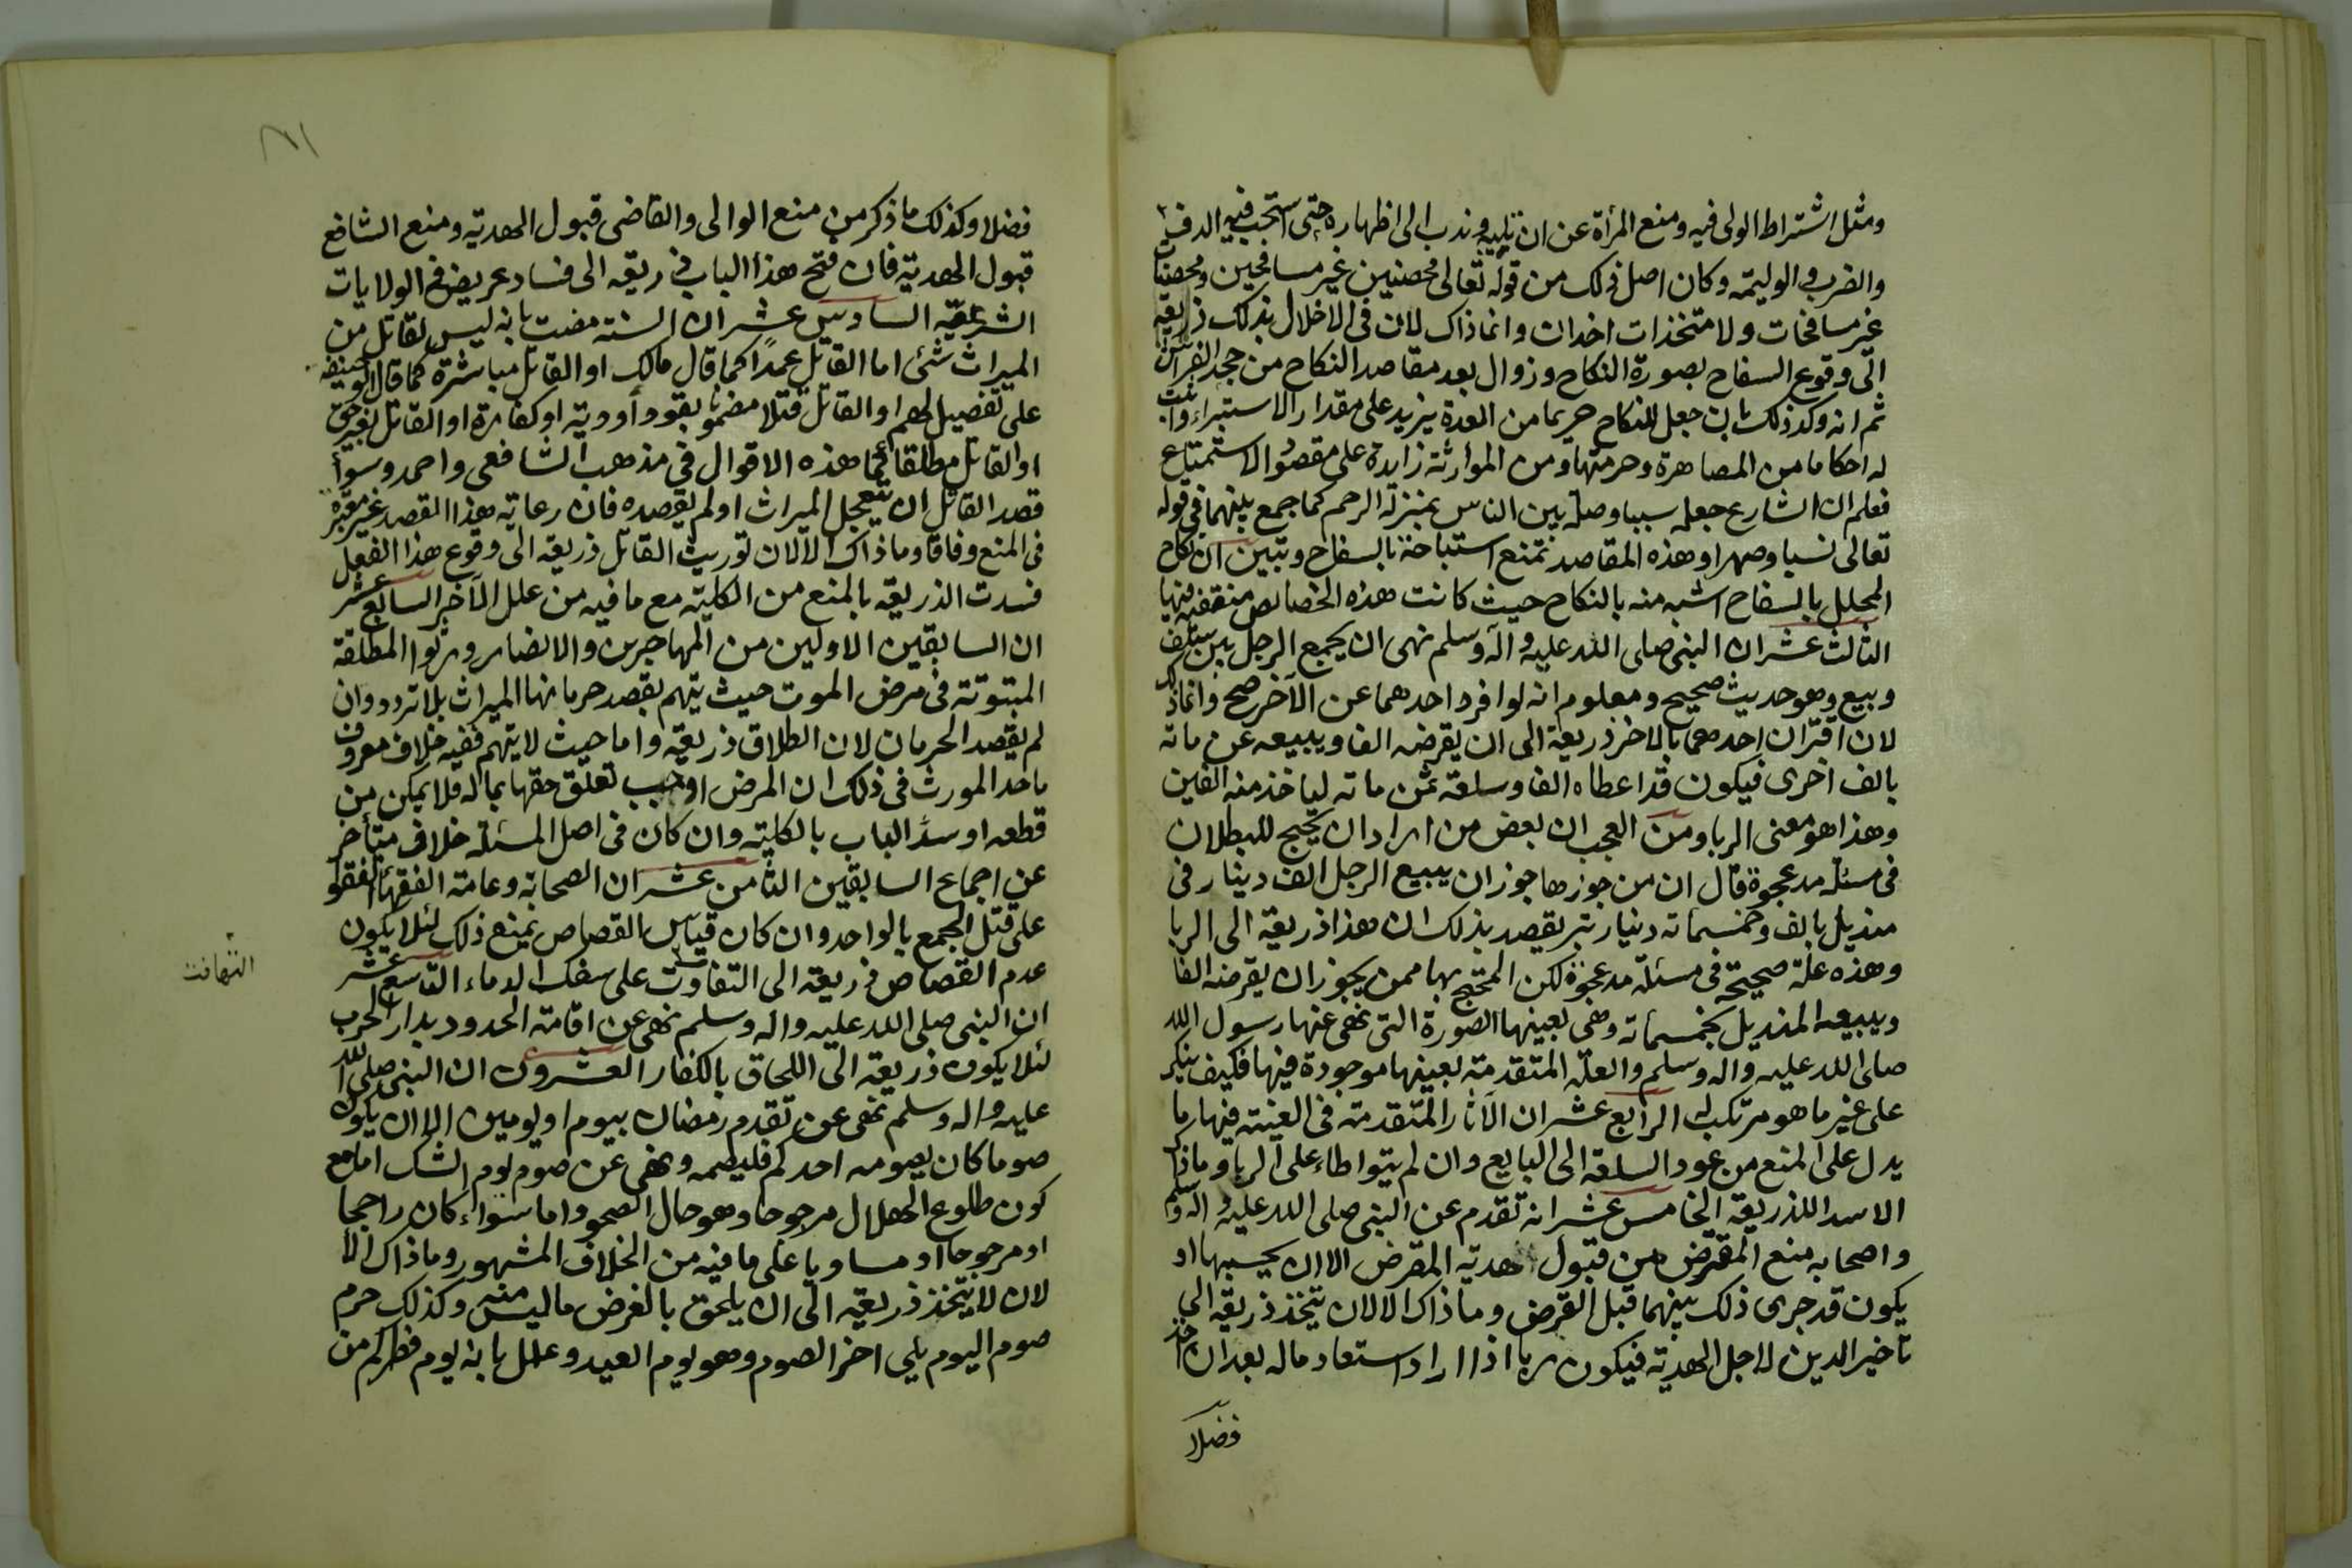 ومثل اشتراط الولى فيه ومنع المرأة عن ان تليه وندب الى اظهاره حتى استحب فيه الدف
والضرب والوليمة وكان اصل ذلك من قوله تعالى محصنين غير مسافحين ومحصنات
غير مسافحات ولا متخذات اخدان وانما ذاك لان فى الاخلال بذلك ذريعة
الى وقوع السفاح بصورة النكاح وزوال بعد مقاصد النكاح من حجر الفراش
ثم انه وكد ذلك بان جعل للنكاح حريما من العدة يزيد على مقدار الاستبراء واثبت
له احكاما من المصاهرة وحرمتها ومن الموارثة زايدة على مقصود الاستمتاع
فعلم ان الشارع جعله سببا وصلة بين الناس بمنزلة الرحم كما جمع بينهما فى قوله
تعالى نسبا وصهرا وهذه المقاصد تمنع استباحته بالسفاح وتبين ان نكاح
المحلل بالسفاح اشبه منه بالنكاح حيث كانت هذه الخصائص منقفية فيها
الثالث عشر ان النبى صلى الله عليه وآله وسلم نهى ان يجمع الرجل بين سلف
وبيع وهو حديث صحيح ومعلوم انه لو افرد احدهما عن الآخر صح وانما ذلك
لان اقتران احدهما بالاخر ذريعة الى ان يقرضه الفا ويبيعه عن مائة
بالف اخرى فيكون قد اعطاه الفا وسلعة بثمن مائة لياخذ منه الفين
وهذا هو معنى الربا ومن العجب ان بعض من اراد ان يحتج للبطلان
فى مسئلة مد عجوة قال ان من جوزها جوز ان يبيع الرجل الف دينار فى
منديل بالف وخمسمائة دينار تبر يقصد بذلك ان هذا ذريعة الى الربا
وهذه علة صحيحة فى مسئلة مد عجوة لكن المحتج بها ممن يجوز ان يقرضه الفا
ويبيعه المنديل بخمسمائة وهى بعينها الصورة التى نهى عنها رسول الله
صلى الله عليه واله وسلم والعلة المتقدمة بعينها موجودة فيها فكيف ينكر
على غيره ما هو مرتكب له الرابع عشر ان الآثار المتقدمة فى العينة فيها ما
يدل على المنع من عود السلعة الى البايع وان لم يتواطاء على الربا وما ذاك
الا سدا للذريعة الخامس عشر انه تقدم عن النبى صلى الله عليه واله وسلم
واصحابه منع المقرض من قبول هدية المقترض الا ان يحسبها او
يكون قد جرى ذلك بينهما قبل القرض وما ذاك الا لان يتخذ ذريعة الى
تاخير الدين لاجل الهدية فيكون ربا اذا اراد استعاد ماله بعد ان اخذ
فضلا
فضلا وكذلك ما ذكر من منع الوالى والقاضى قبول الهدية ومنع الشافع
قبول الهدية فان فتح هذا الباب ذريعة الى فساد عريض فى الولايات
الشرعية السادس عشر ان السنة مضت بانه ليس لقاتل من
الميراث شئ اما القاتل عمدا كما قال مالك او القاتل مباشرة كما قال ابو حنيفة
على تفصيل لهم او القاتل قتلا مضمونا بقود أو دية او كفارة او القاتل بغير حق
او القاتل مطلقا كما هذه الاقوال فى مذهب الشافعى واحمد وسواء
قصد القاتل ان يتعجل الميراث او لم يقصده فان رعاية هذا القصد غير معتبرة
فى المنع وفاقا وما ذاك الا لان توريث القاتل ذريعة الى وقوع هذا الفعل
فسدت الذريعة بالمنع من الكلية مع ما فيه من علل الآخر السابع عشر
ان السابقين الاولين من المهاجرين والانصار ورثوا المطلقة
المبتوتة فى مرض الموت حيث يتهم بقصد حرمانها الميراث بلا تردد وان
لم يقصد الحرمان لان الطلاق ذريعة واما حيث لا يتهم ففيه خلاف معروف
ماخذ المورث فى ذلك ان المرض اوجب تعلق حقها بماله فلا يمكن من
قطعه او سد الباب بالكلية وان كان فى اصل المسئلة خلاف متأخر
عن اجماع السابقين الثامن عشر ان الصحابة وعامة الفقهاء اتفقوا
على قتل الجمع بالواحد وان كان قياس القصاص يمنع ذلك لئلا يكون
عدم القصاص ذريعة الى التفاوت على سفك الدماء التاسع عشر
التهافت
ان النبى صلى الله عليه واله وسلم نهى عن اقامة الحدود بدار الحرب
لئلا يكون ذريعة الى اللحاق بالكفار العشرون ان النبى صلى الله
عليه واله وسلم نهى عن تقدم رمضان بيوم او يومين الا ان يكون
صوما كان يصومه احدكم فليصمه ونهى عن صوم يوم الشك اما مع
كون طلوع الهلال مرجوحا وهو حال الصحو واما سواء كان راجحا
او مرجوحا او مساويا على ما فيه من الخلاف المشهور وما ذاك الا
لان لا يتخذ ذريعة الى ان يلحق بالفرض ما ليس منه وكذلك حرم
صوم اليوم يلى اخر الصوم وهو يوم العيد وعلل بانه يوم فطركم من